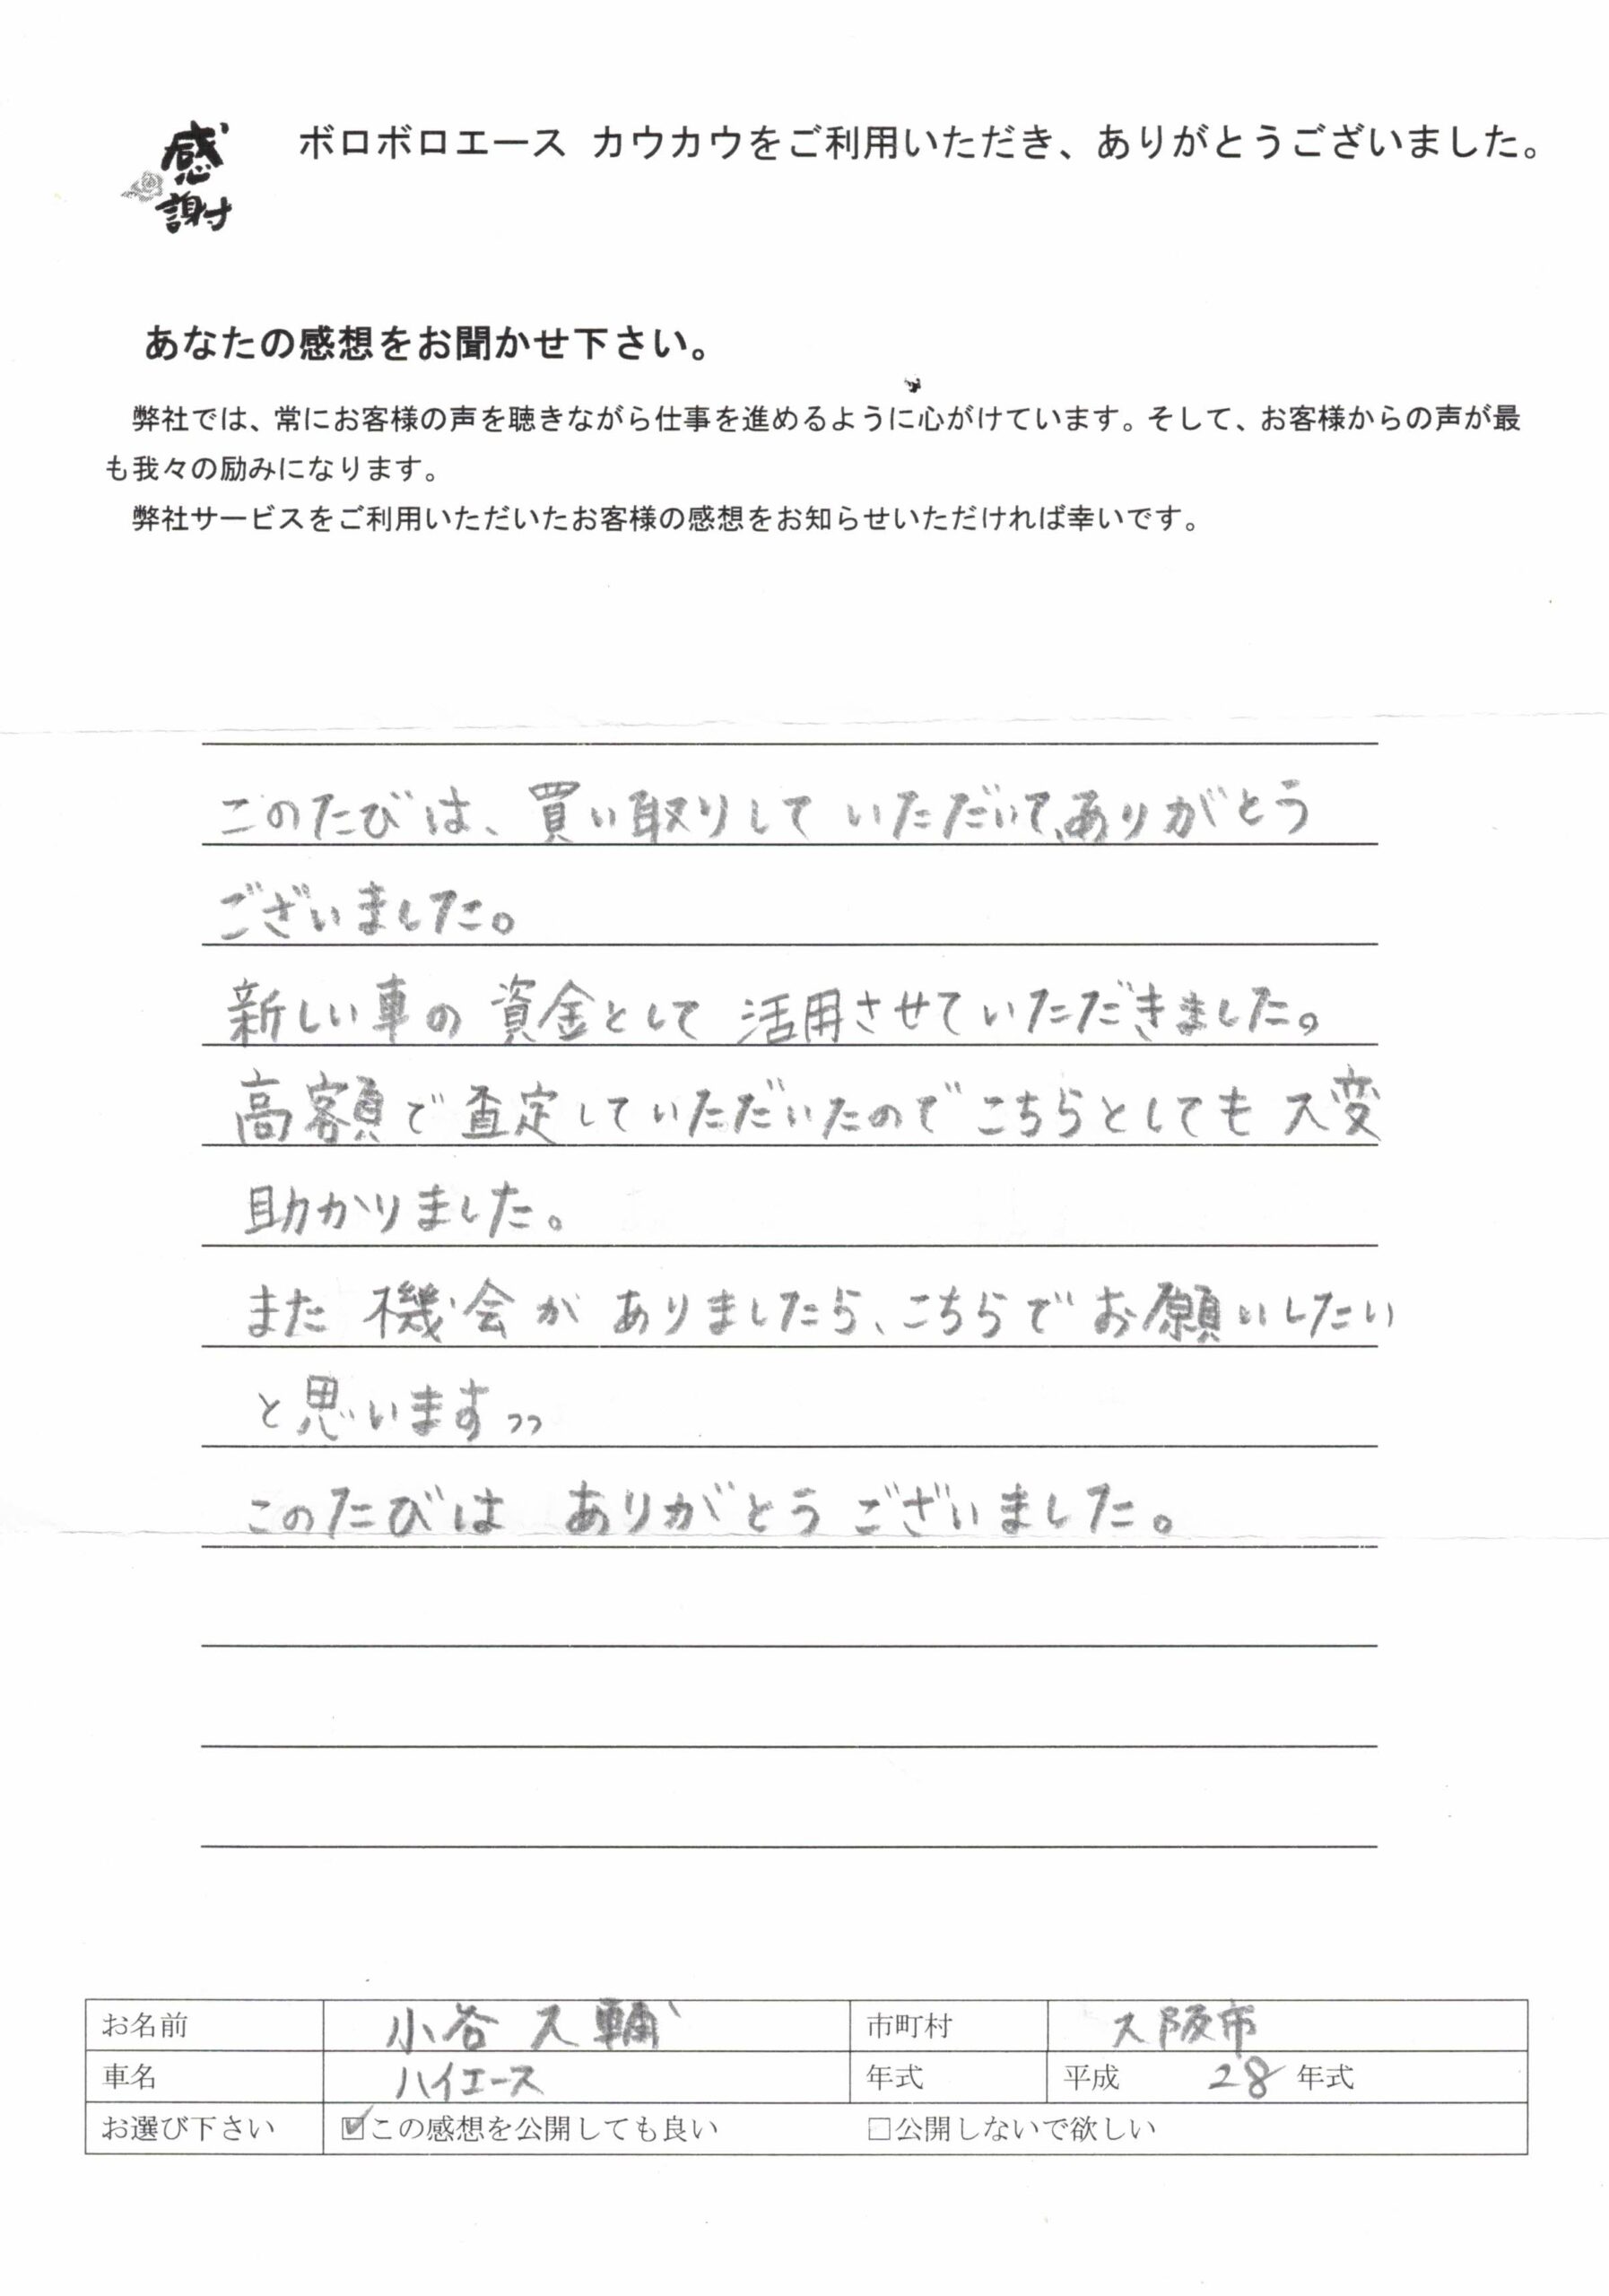 感謝
ボロボロエース カウカウをご利用いただき、ありがとうございました。
あなたの感想をお聞かせ下さい。
弊社では、常にお客様の声を聴きながら仕事を進めるように心がけています。そして、お客様からの声が最
も我々の励みになります。
弊社サービスをご利用いただいたお客様の感想をお知らせいただければ幸いです。
このたびは、買い取りしていただいて、ありがとう
ございました。
新しい車の資金として活用させていただきました。
高額で査定していただいたのでこちらとしても大変
助かりました。
また機会がありましたら、こちらでお願いしたい
と思います。
このたびはありがとうございました。
お名前 小谷 大輔 市町村 大阪市
車名 ハイエース 年式 平成 28 年式
お選び下さい ☑この感想を公開しても良い □公開しないで欲しい